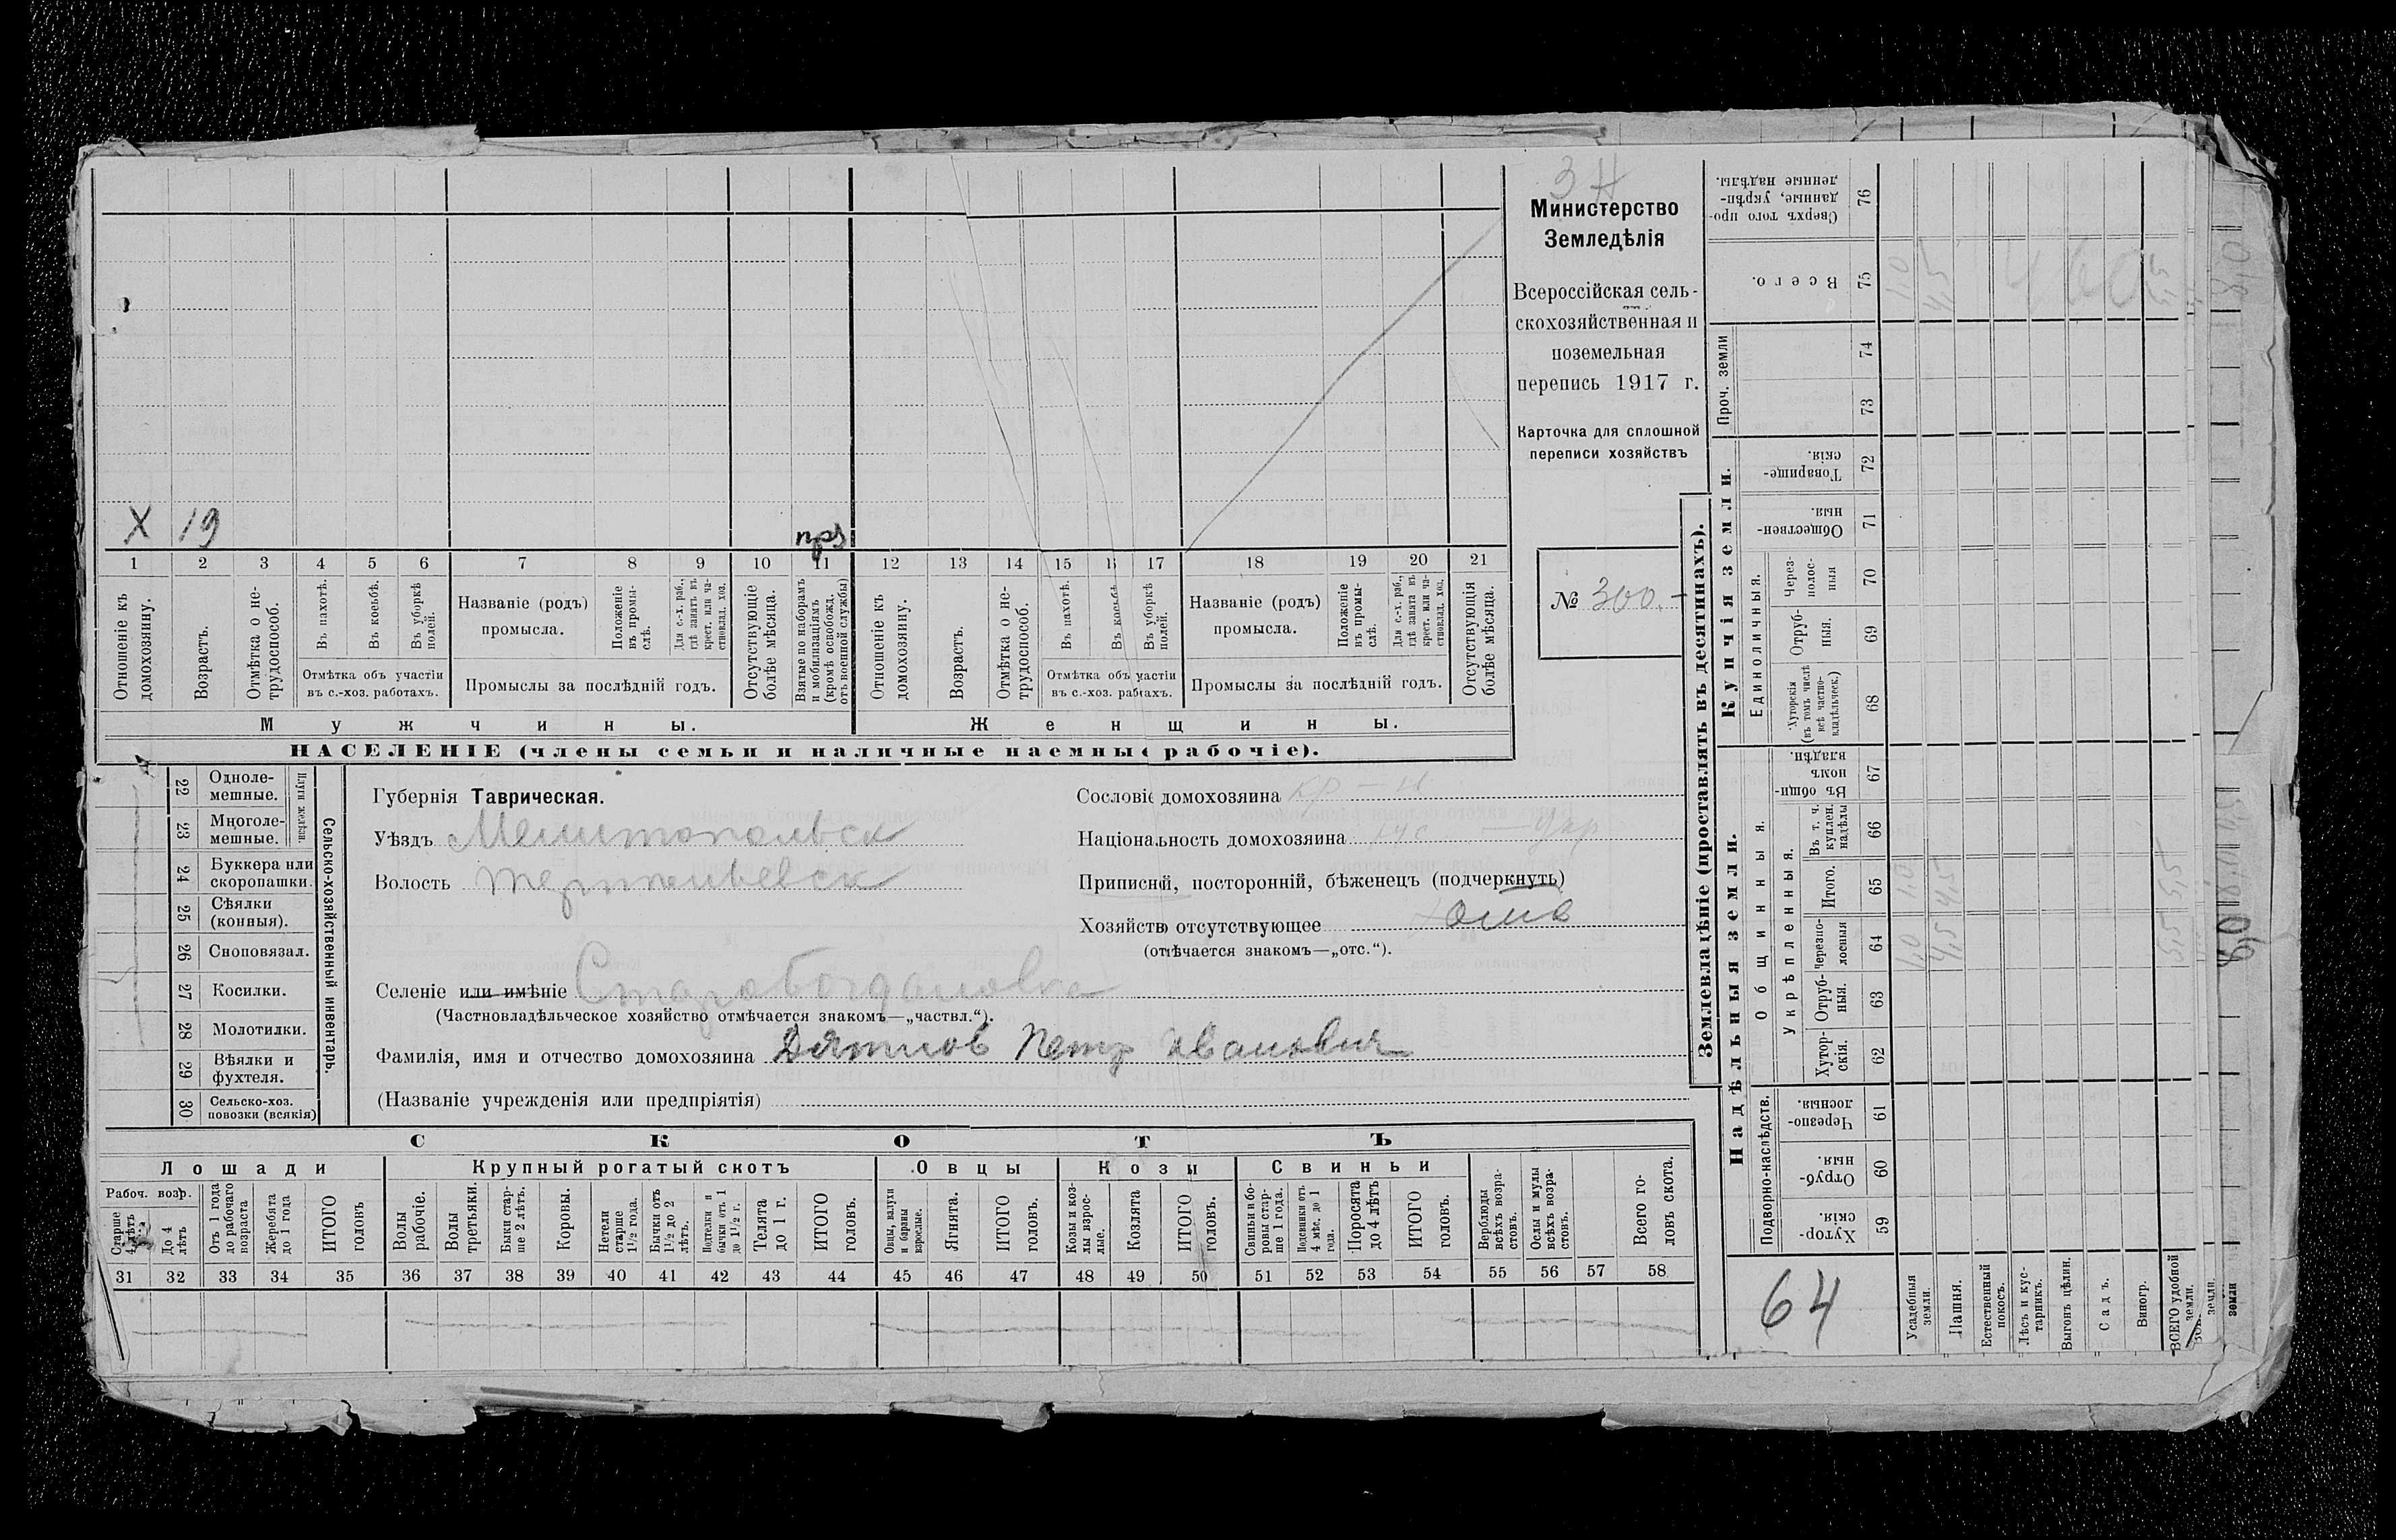 3 Н
Министерство
Земледѣлія
Всероссійская сель-
скохозяйственная и
поземельная
перепись 1917 г.
Карточка для сплошной
переписи хозяйствъ
№ 300.
X 19
1 2 3 4 5 6 7 8 9 10 11 12 13 14 15 17 18 19 20 21
Отношеніе къ домохозяину.
Возрастъ.
Отмѣтка о не-трудоспособ.
Въ пахотѣ.
Въ косьбѣ.
Въ уборкѣ полей.
Отмѣтка объ участіи
въ с.-хоз. работахъ.
Названіе (родъ)
промысла.
Положеніе въ промы-слѣ.
Для с.-х. раб., гдѣ занятъ въ крест. или ча-стновлад. хоз.
Промыслы за послѣдній годъ.
Отсутствующіе болѣе мѣсяца.
Взятые по наборамъ и мобилизаціямъ (кромѣ освобожд. отъ военной службы)
Отношеніе къ домохозяину.
Возрастъ.
Отмѣтка о не-трудоспособ.
Въ пахотѣ.
Въ косьбѣ
Въ уборкѣ полей.
Отмѣтка объ участіи
въ с.-хоз. работахъ.
Названіе (родъ)
промысла.
Положеніе въ промы-слѣ.
Для с.-х. раб., гдѣ занята въ крест. или ча-стновлад. хоз.
Промыслы за послѣдній годъ.
Отсутствующія болѣе мѣсяца.
Мужчины.
Женщины.
НАСЕЛЕНІЕ (члены семьи и наличные наемные рабочіе).
22 Одноле-мешные.
23 Многоле-мешные.
Плуги желѣзн.
24 Буккера или скоропашки.
25 Сѣялки (конныя).
26 Сноповязал.
27 Косилки.
28 Молотилки.
29 Вѣялки и фухтеля.
30 Сельско-хоз. повозки (всякія)
Сельско-хозяйственный инвентарь.
Губернія Таврическая.
Уѣздъ Мелитопольск
Волость Терпеньевск
Сословіе домохозяина кр-н
Національность домохозяина рус — Укр
Приписной, посторонній, бѣженецъ (подчеркнуть)
Хозяйство отсутствующее
(отмѣчается знакомъ—„отс.“).
Селеніе или имѣніе Старобогдановка
(Частновладѣльческое хозяйство отмѣчается знакомъ—„частвл.“).
Фамилія, имя и отчество домохозяина Дятлов Петр Иванович
(Названіе учрежденія или предпріятія)
СКОТЪ
Лошади
Крупный рогатый скотъ
Овцы
Козы
Свиньи
Рабоч. возр.
Старше 4 лѣтъ
До 4 лѣтъ
Отъ 1 года до рабочаго возраста
Жеребята до 1 года
ИТОГО головъ
Волы рабочіе.
Волы третьяки.
Быки стар-ше 2 лѣтъ.
Коровы.
Нетели старше 1½ года.
Бычки отъ 1½ до 2 лѣтъ.
Подтелки и бычки отъ 1 до 1½ г.
Телята до 1 г.
ИТОГО головъ.
Овцы, валухи и бараны взрослые.
Ягнята.
ИТОГО головъ.
Козы и коз-лы взрос-лые.
Козлята
ИТОГО головъ.
Свиньи и бо-ровы стар-ше 1 года.
Подсвинки отъ 4 мѣс. до 1 года.
Поросята до 4 лѣтъ
ИТОГО головъ.
Верблюды всѣхъ возра-стовъ.
Ослы и мулы всѣхъ возра-стовъ.
Всего го-ловъ скота.
31 32 33 34 35 36 37 38 39 40 41 42 43 44 45 46 47 48 49 50 51 52 53 54 55 56 57 58
Землевладѣніе (проставлять въ десятинахъ).
Купчія земли.
Надѣльныя земли.
Сверхъ того про-данные, укрѣп-ленные надѣлы. 76
Всего. 75
Проч. земли
74
73
Товарище-скія. 72
Обществен-ныя. 71
Единоличныя.
Через-полос-ныя 70
Отруб-ныя. 69
Хуторскія (въ томъ числѣ всѣ частно-владѣльческ.) 68
Общинныя.
Въ общи-номъ владѣн. 67
Укрѣпленныя.
Въ т. ч. куплен. надѣлы 66
Итого. 65
Черезпо-лосныя 64
Отруб-ныя. 63
Хутор-скія. 62
Подворно-наслѣдств.
Черезпо-лосныя. 61
Отруб-ныя. 60
Хутор-скія. 59
64
Усадебныя земли.
Пашня.
Естественный покосъ.
Лѣсъ и кус-тарникъ.
Выгонъ цѣлин.
Садъ.
Виногр.
ВСЕГО удобной земли.
земли